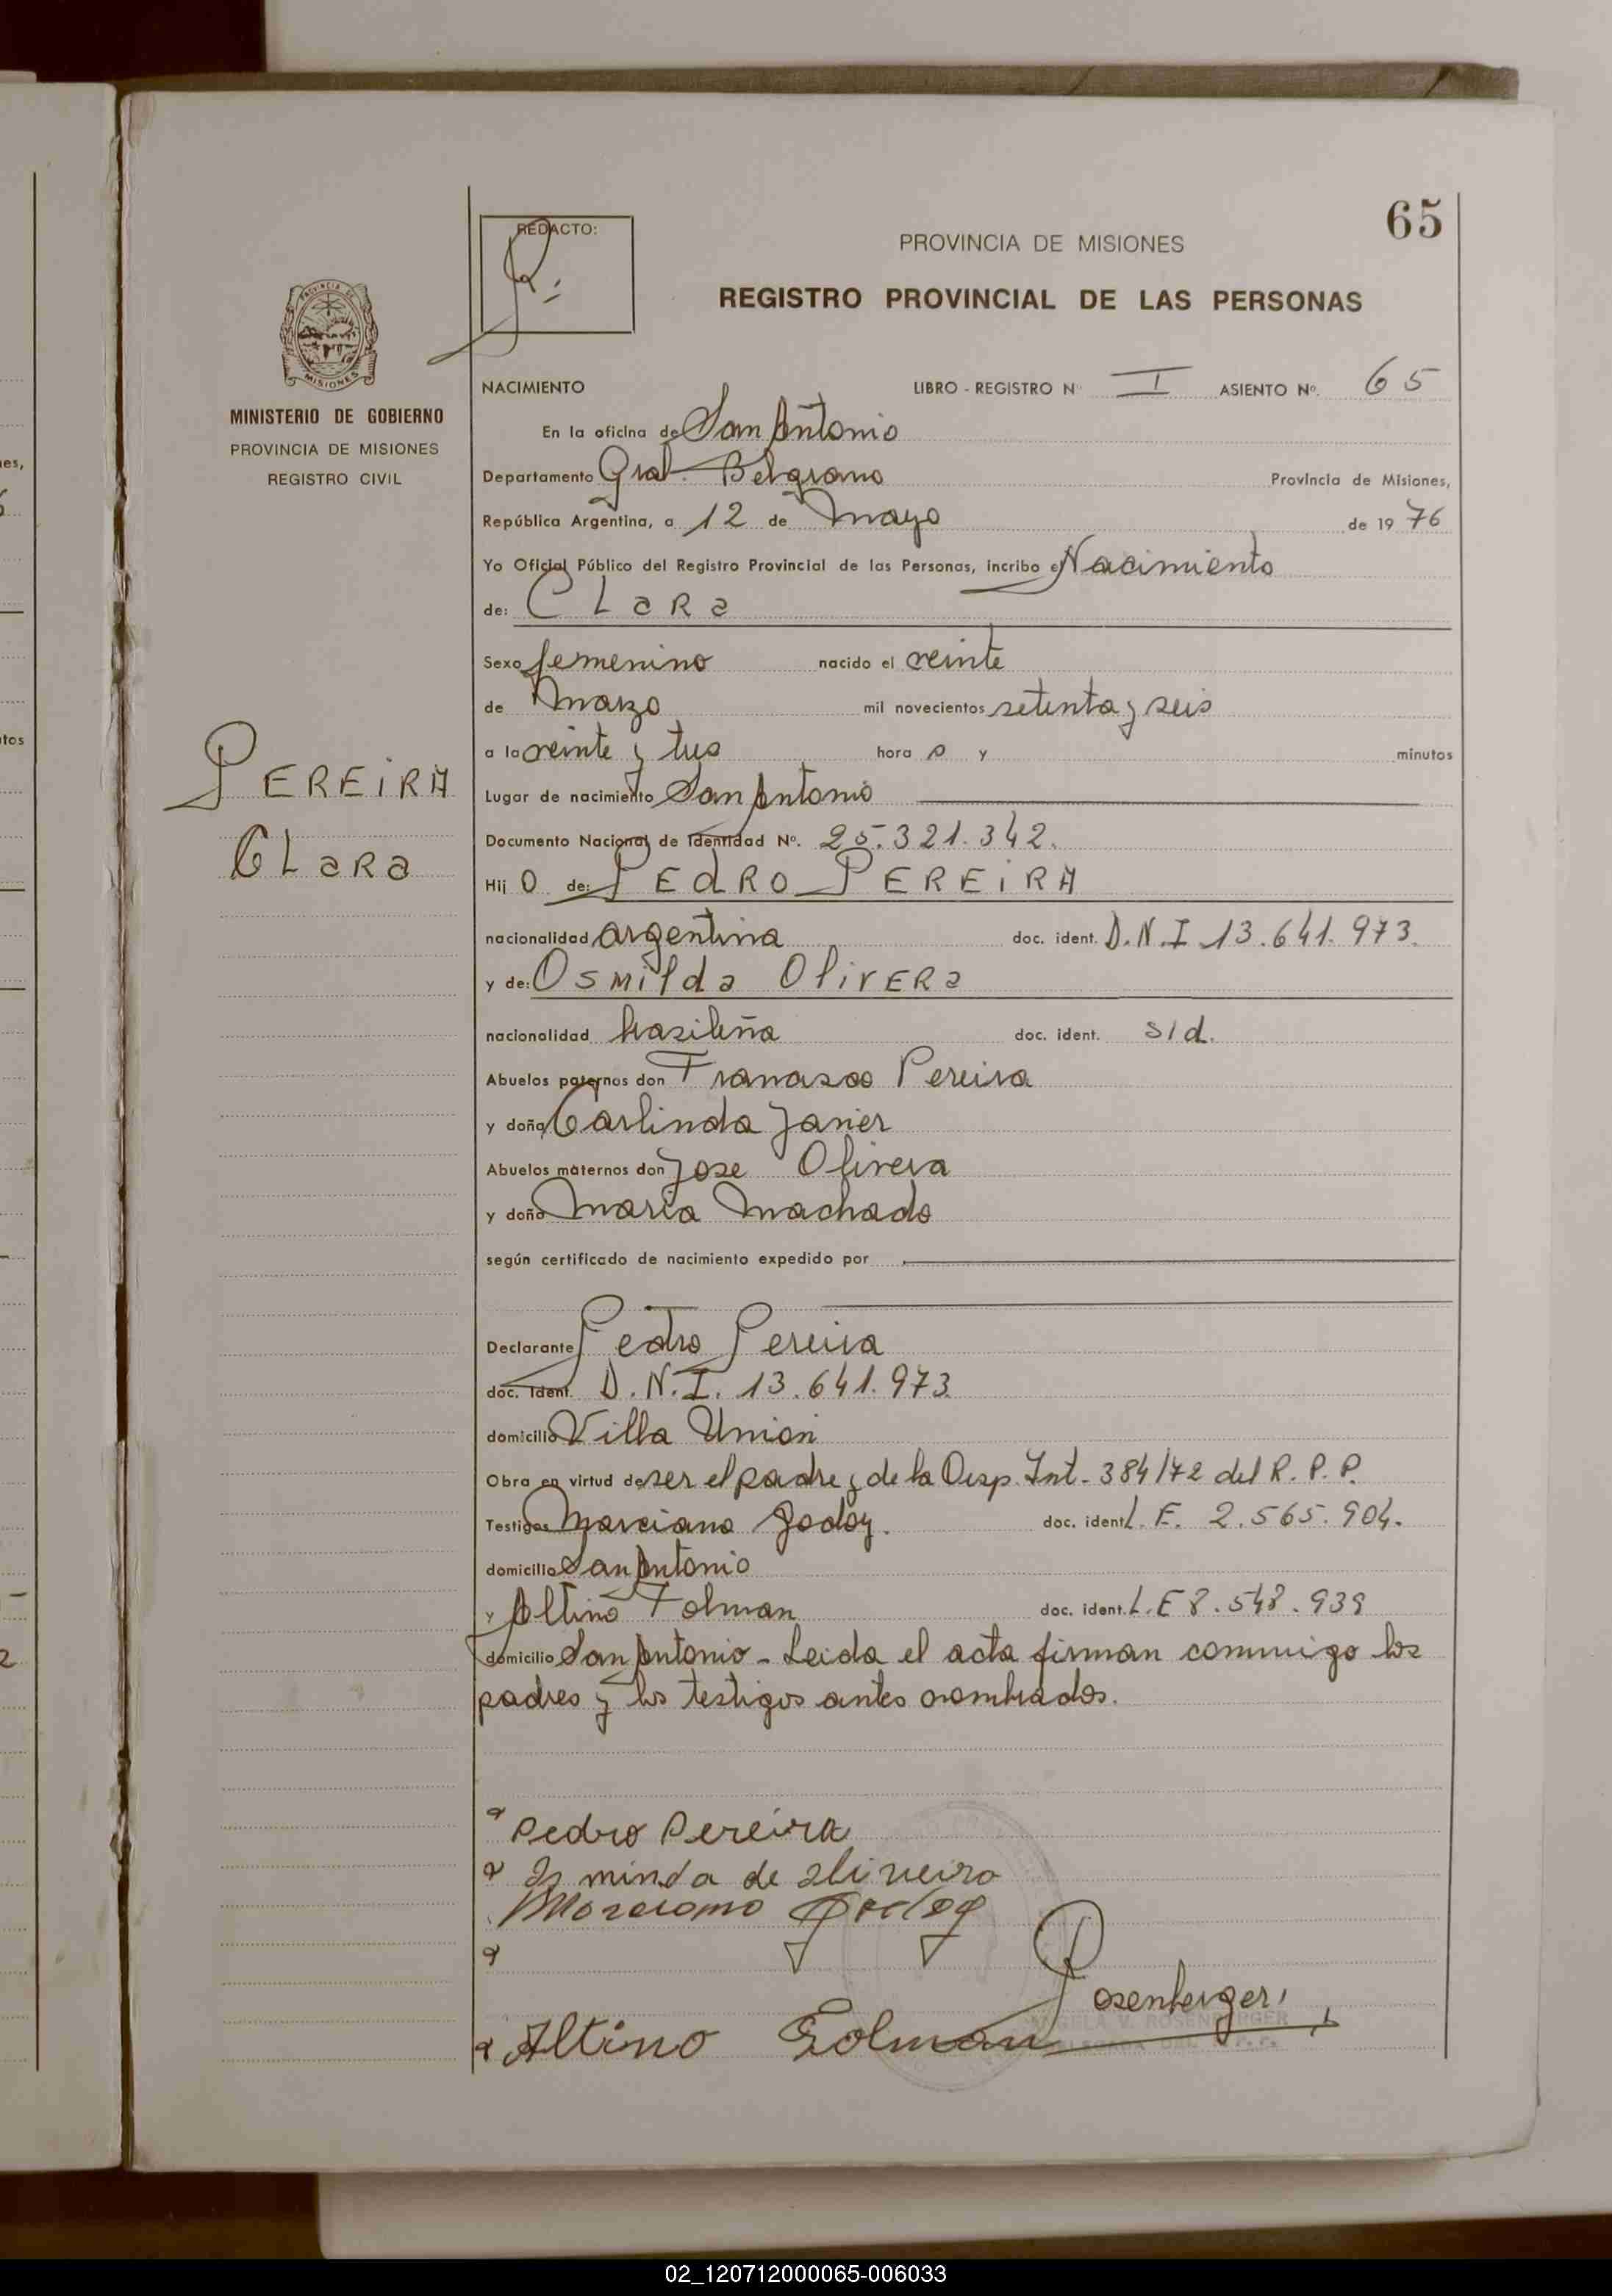 65
REDACTO:
PROVINCIA DE MISIONES
REGISTRO PROVINCIAL DE LAS PERSONAS
PROVINCIA DE
MISIONES
MINISTERIO DE GOBIERNO
PROVINCIA DE MISIONES
REGISTRO CIVIL
PEREIRA
CLARA
NACIMIENTO LIBRO - REGISTRO Nº I ASIENTO Nº. 65
En la oficina de San Antonio
Departamento Gral. Belgrano Provincia de Misiones,
República Argentina, a 12 de Mayo de 1976
Yo Oficial Público del Registro Provincial de las Personas, incribo el Nacimiento
de: CLARA
Sexo femenino nacido el veinte
de Marzo mil novecientos setenta y seis
a la veinte y tres hora s y minutos
Lugar de nacimiento San Antonio
Documento Nacional de Identidad Nº. 25.321.342.
Hij o de: PEdRO PEREiRA
nacionalidad argentina doc. ident. D.N.I 13.641.973.
y de: OSMilda OlivERa
nacionalidad brasileña doc. ident. s/d.
Abuelos paternos don Francisco Pereira
y doña Carlinda Javier
Abuelos maternos don Jose Olivera
y doña Maria Machado
según certificado de nacimiento expedido por
Declarante Pedro Pereira
doc. Ident. D.N.I. 13.641.973
domicilio Villa Union
Obra en virtud de ser el padre y de la Disp. Int. 384/72 del R.P.P.
Testigos Marciano Godoy. doc. ident. L.E. 2.565.904.
domicilio San Antonio
y Altino Folman doc. ident. L.E 8.548.939
domicilio San Antonio - Leida el acta firman conmigo los
padres y los testigos antes nombrados.
Pedro Pereira
Osminda de oliveira
Marciano Godoy
Rosenberger
ANGELA V. ROSENBERGER
Altino Folman
02_120712000065-006033